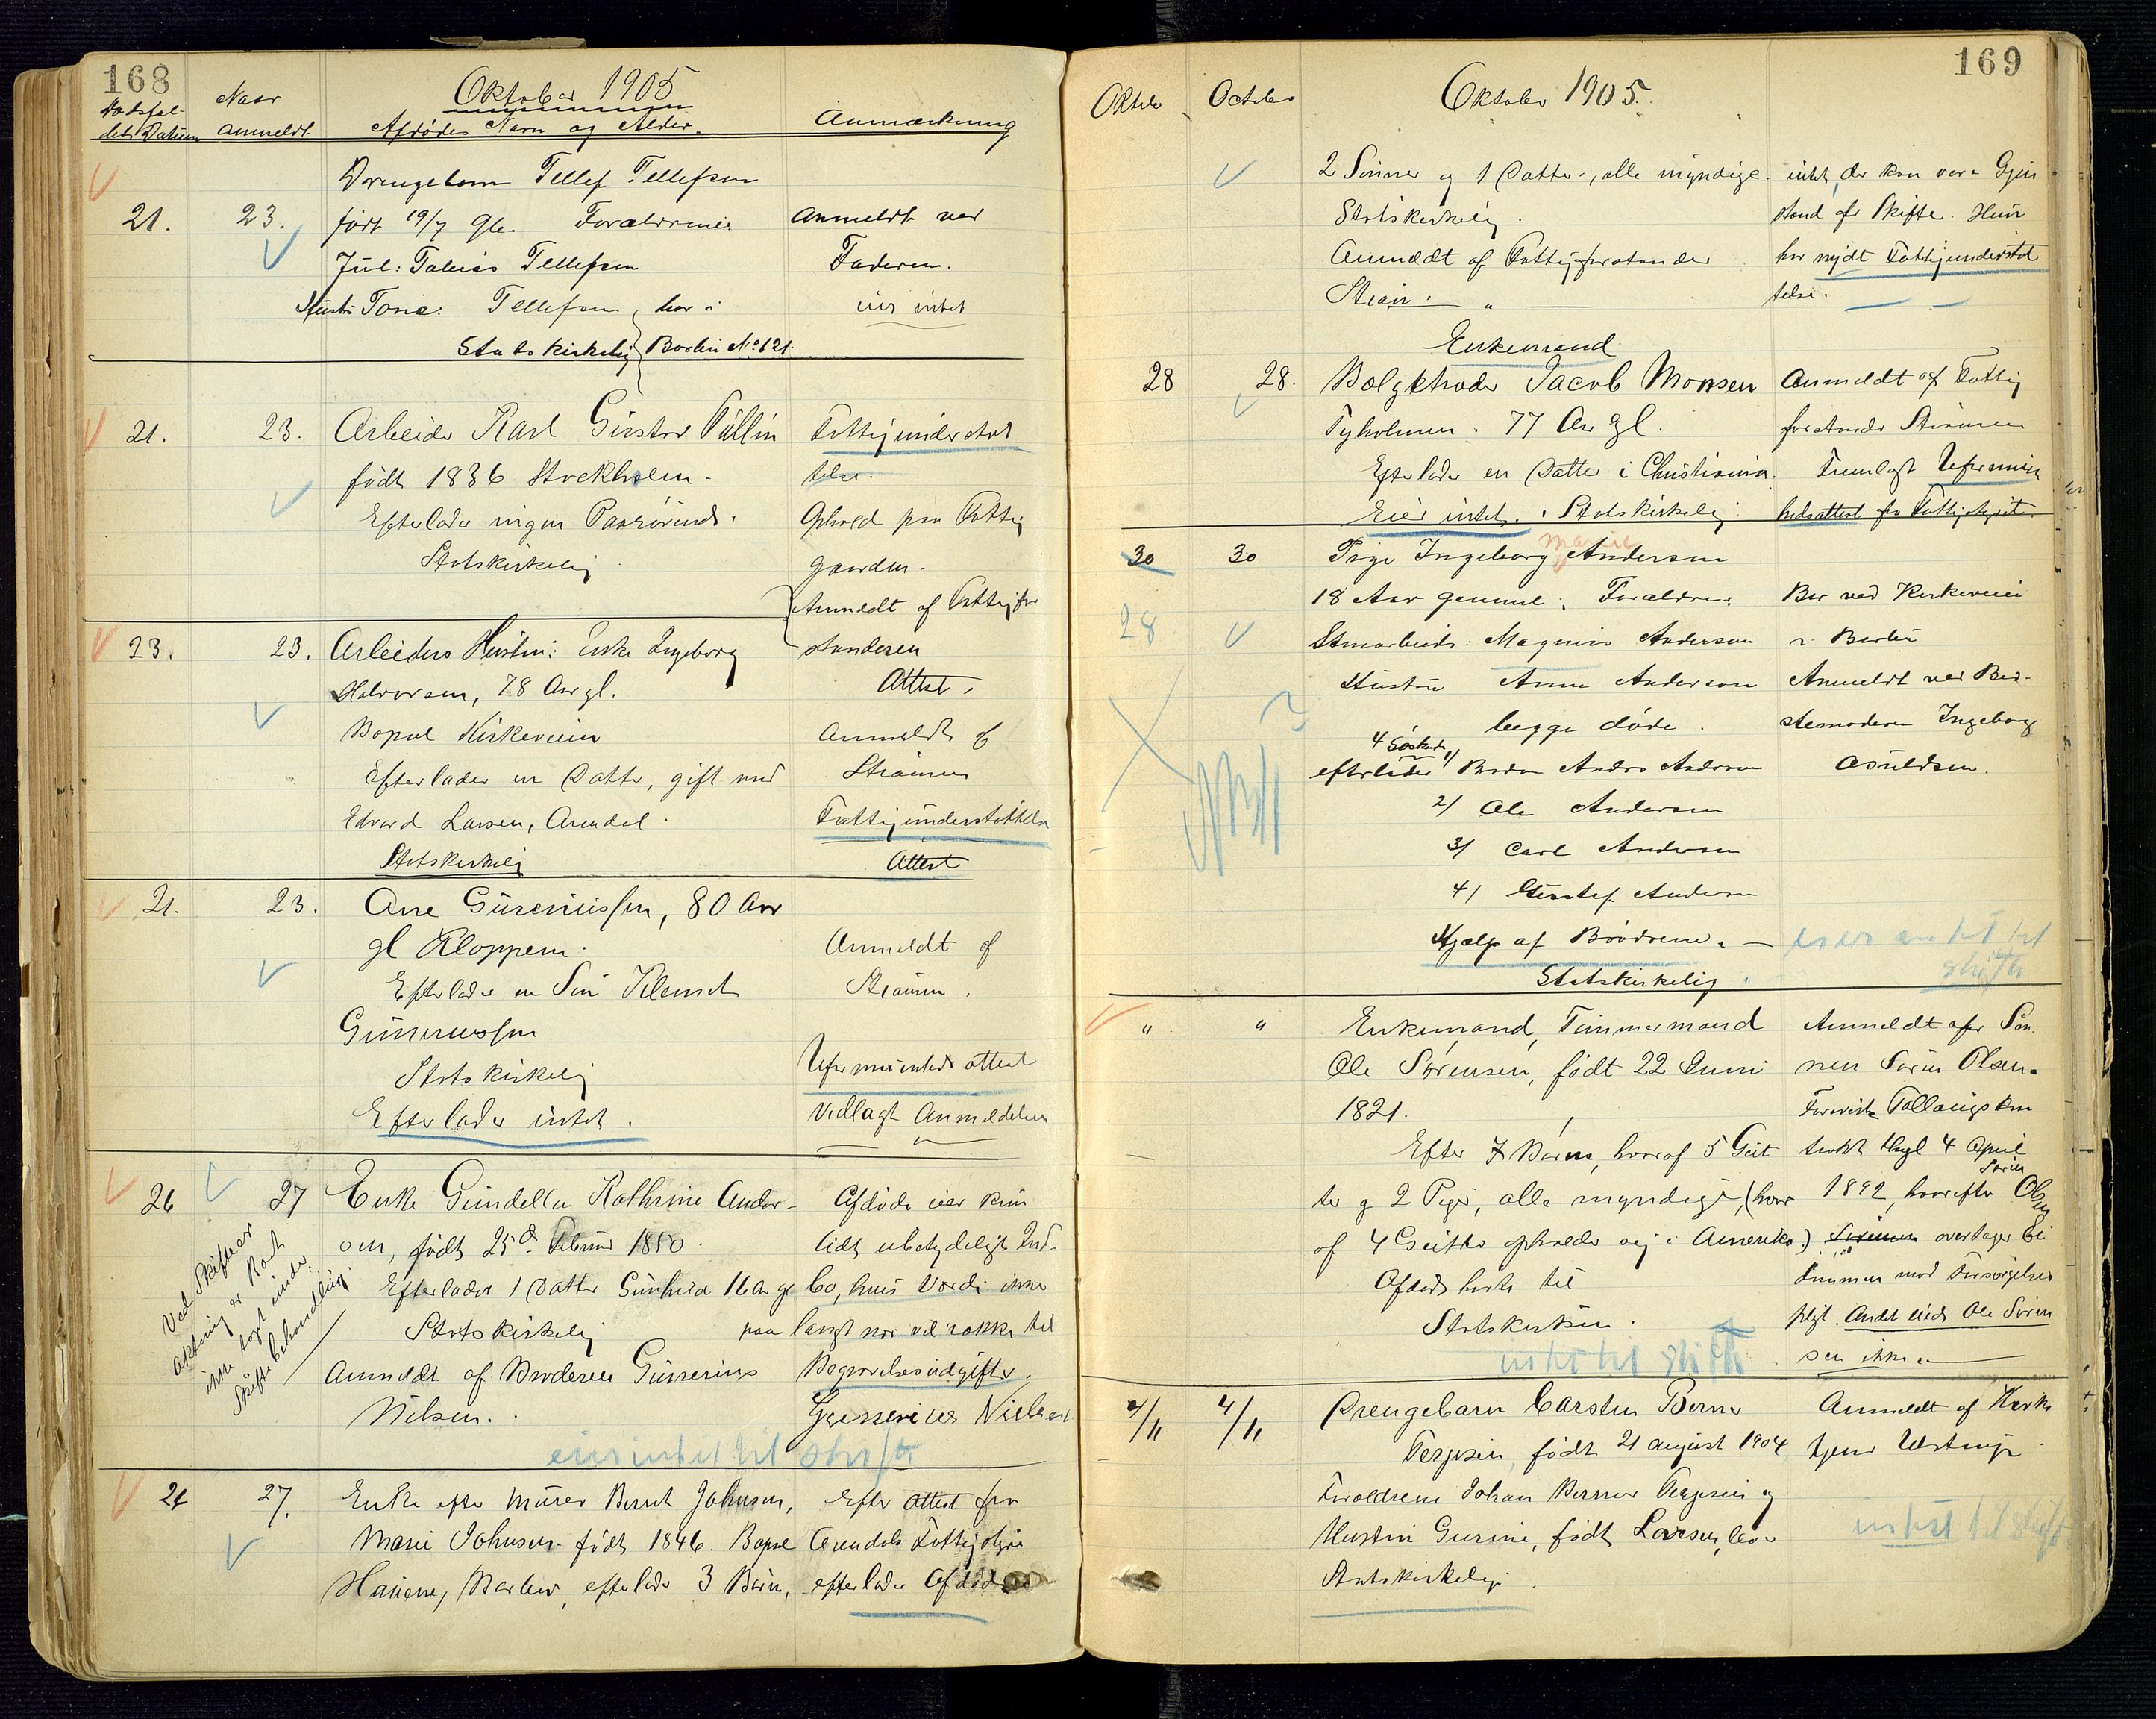 168
Oktober 1905
Dødsfal-
det Datum
Naar
anmeldt
Afdødes Navn og Alder.
Anmærkning
Drengebarn Tellef Tellefsen
21. 23. født 19/7 gl. Forældrene Anmeldt ved
Tobias Tellefsen Faderen.
Hustru Tellefsen bor i eier intet
Statskirkelig Barbu No 121.
21. 23. Arbeider Karl Gustav Fattigunderstøt
født 1836 Stockholm. telse.
Efterlader ingen Paarørende. Ophold paa Fattig
Statskirkelig gaarden.
Anmeldt af Fattigfor
23. 23. Arbeiders Hustru: Enke Ingeborg standeren
Halvorsen, 78 Aar gl. Attest.
Bopæl Kirkeveien Anmeldt af
Efterlader en Datter, gift med
Edvard Larsen, Arendal. Fattigunderstøttelse
Statskirkelig Attest
21. 23. Ane 80 Aar
gl Kloppene. Anmeldt af
Efterlader en Søn
Statskirkelig Uformuenheds attest
Efterlader intet. Vedlagt Anmeldelsen
26 27 Enke Gundella Kathrine Ander- Afdøde eier kun
sen, født 25de Februar 1850. lidt ubetydeligt Ind-
Efterlader 1 Datter Gunhild 16 Aar gl bo, hvis Værdi ikke
Statskirkelig paa langt nær vil række til
Anmeldt af Broderen Gunerius Begravelsesudgifter.
Nilsen. Gunerius Nielsen
Ved Skifteret
ikke taget under
Skiftebehandling.
eier intet til skifte
26 27. Enke efter Murer Bernt Johnsen, Efter attest fra
Marie Johnsen født 1846. Bopæl Arendals Fattigstyre
Barbu, efterlader 3 Børn, efterlader Afdøde
169
Oktober October Oktober 1905.
2 Sønner og 1 Datter, alle myndige. intet, der kan være Gjen
Statskirkelig. stand for Skifte. Hun
Anmeldt af Fattigforstander har nydt Fattigunderstøt
telse.
Enkemand
28 28. Bælgetræder Jacob Monsen Anmeldt af Fattig
Tyholmen. 77 Aar gl. forstander
Efterlader en Datter i Christiania. Fremlagt Uformuen
Eier intet. Statskirkelig hedsattest fra Fattigstyret.
30 30 Pige Ingeborg Marie Andersen
18 Aar gammel. Forældre: Bor ved Kirkeveien
28 Magnus Andersen i Barbu
Hustru Anne Andersen Anmeldt ved Bed-
begge døde. stemoderen Ingeborg
4 Søskende
efterlader 1/ Broder Andersen
2/ Ole Andersen
3/ Carl Andersen
4/ Gustaf Andersen
NB!
Hjælp af Brødrene. eier intet til
skifte
Statskirkelig.
" " Enkemand, Tømmermand Anmeldt af Søn
Ole Sørensen, født 22 Juni nen Søren Olsen.
1821.
Efter 7 Børn, hvoraf 5 Gut trakt thgl 4 April
ter og 2 Piger, alle myndige, (hvor 1892, hvorefter Søren Olsen
af 4 Gutter opholder sig i Amerika.) overtager Ei
Afdøde hørte til dommen mod Forsørgelses
Statskirken. pligt. Andet eiede Ole Søren
intet til skifte sen ikke
4/11 4/11 Drengebarn Carsten Berner Anmeldt af Kirke
Terjesen, født 21 august 1904 tjener
Forældrene Johan Berner Terjesen og
Hustru Gurine, født Larsen, intet til skifte
Statskirkelig.